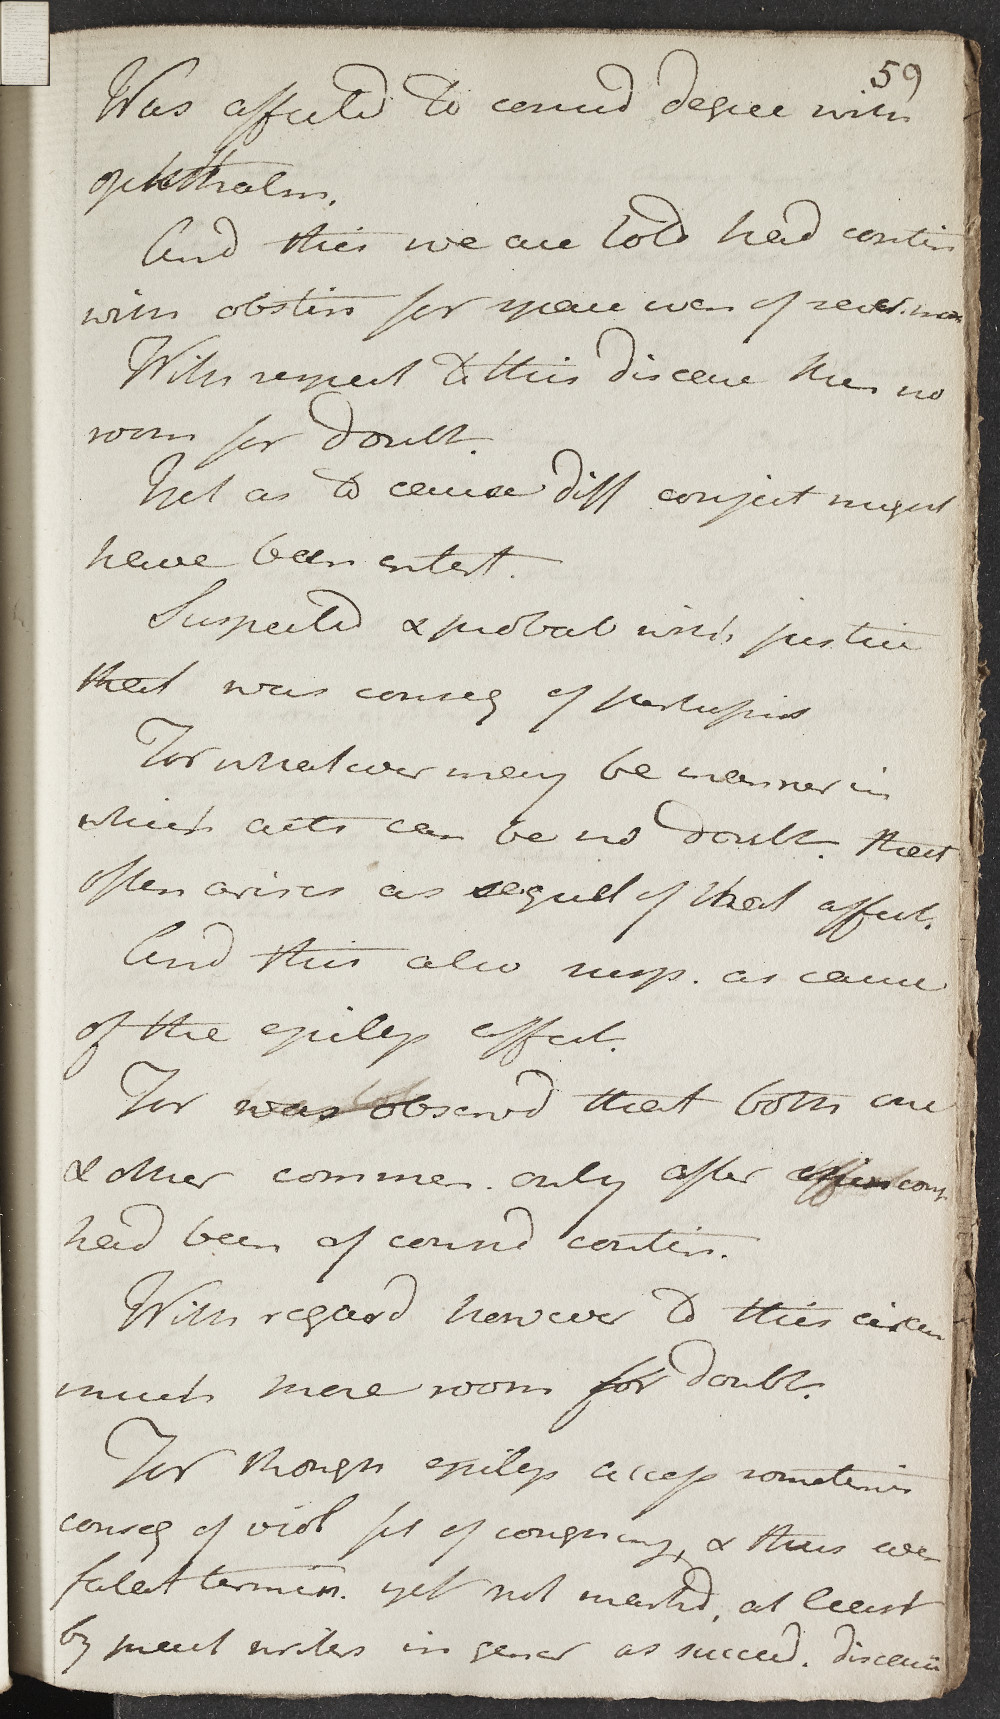 59
Was affected to consid degree with
ophthalm.
And this we are told had contin
with obstin for space even of several mon
With respect to this disease then no
room for doubt.
Yet as to cause diff conject might
have been entert.
Suspected & probab with justice
that was conseq of pertussis
For whatever may be manner in
which acts can be no doubt. that
often arises as sequel of that affect.
And this also susp. as cause
of the epilep affect.
For was observd that both one
& other commen. only after
had been of consid contin.
With regard however to this circum
much more room for doubt.
For though epilep access sometimes
conseq of viol fit of coughing, & thus even
fatal termin. yet not markd, at least
by pract writers in gener as succeed. disease